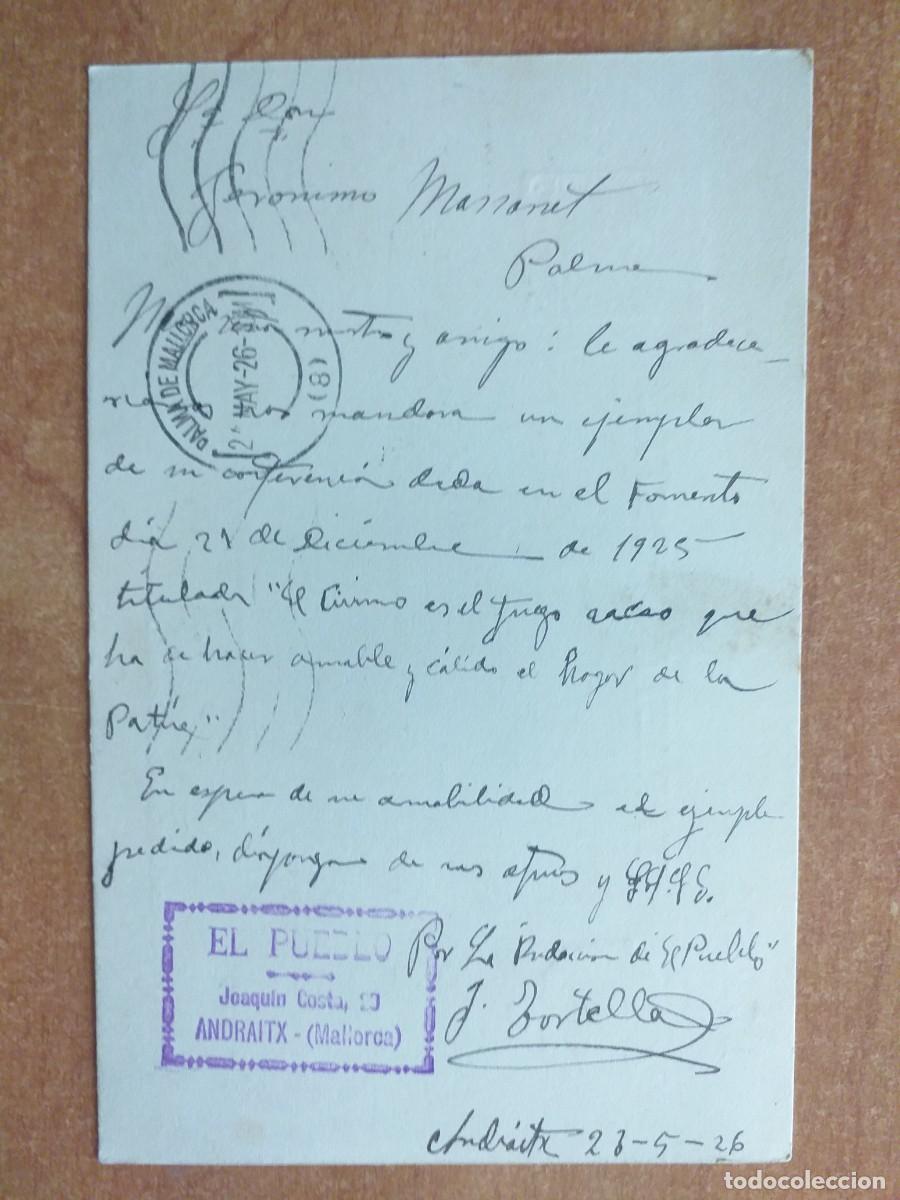 Sr Don
Jeronimo Massanet
Palma
PALMA DE MALLORCA
MAY-26
(8)
y amigo: le agradece-
nos mandara un ejemplar
de su conferencia dada en el Fomento
día 21 de Diciembre de 1925
titulada "El Civismo es el fuego sacro que
ha de hacer amable y cálido el hogar de la
Patria"
En espera de su amabilidad el ejemplar
pedido, disponga de sus y
Por La Redacción de "El Pueblo"
J. Tortella
EL PUEBLO
Joaquín Costa,
ANDRAITX - (Mallorca)
Andráitx 23-5-26
todocoleccion